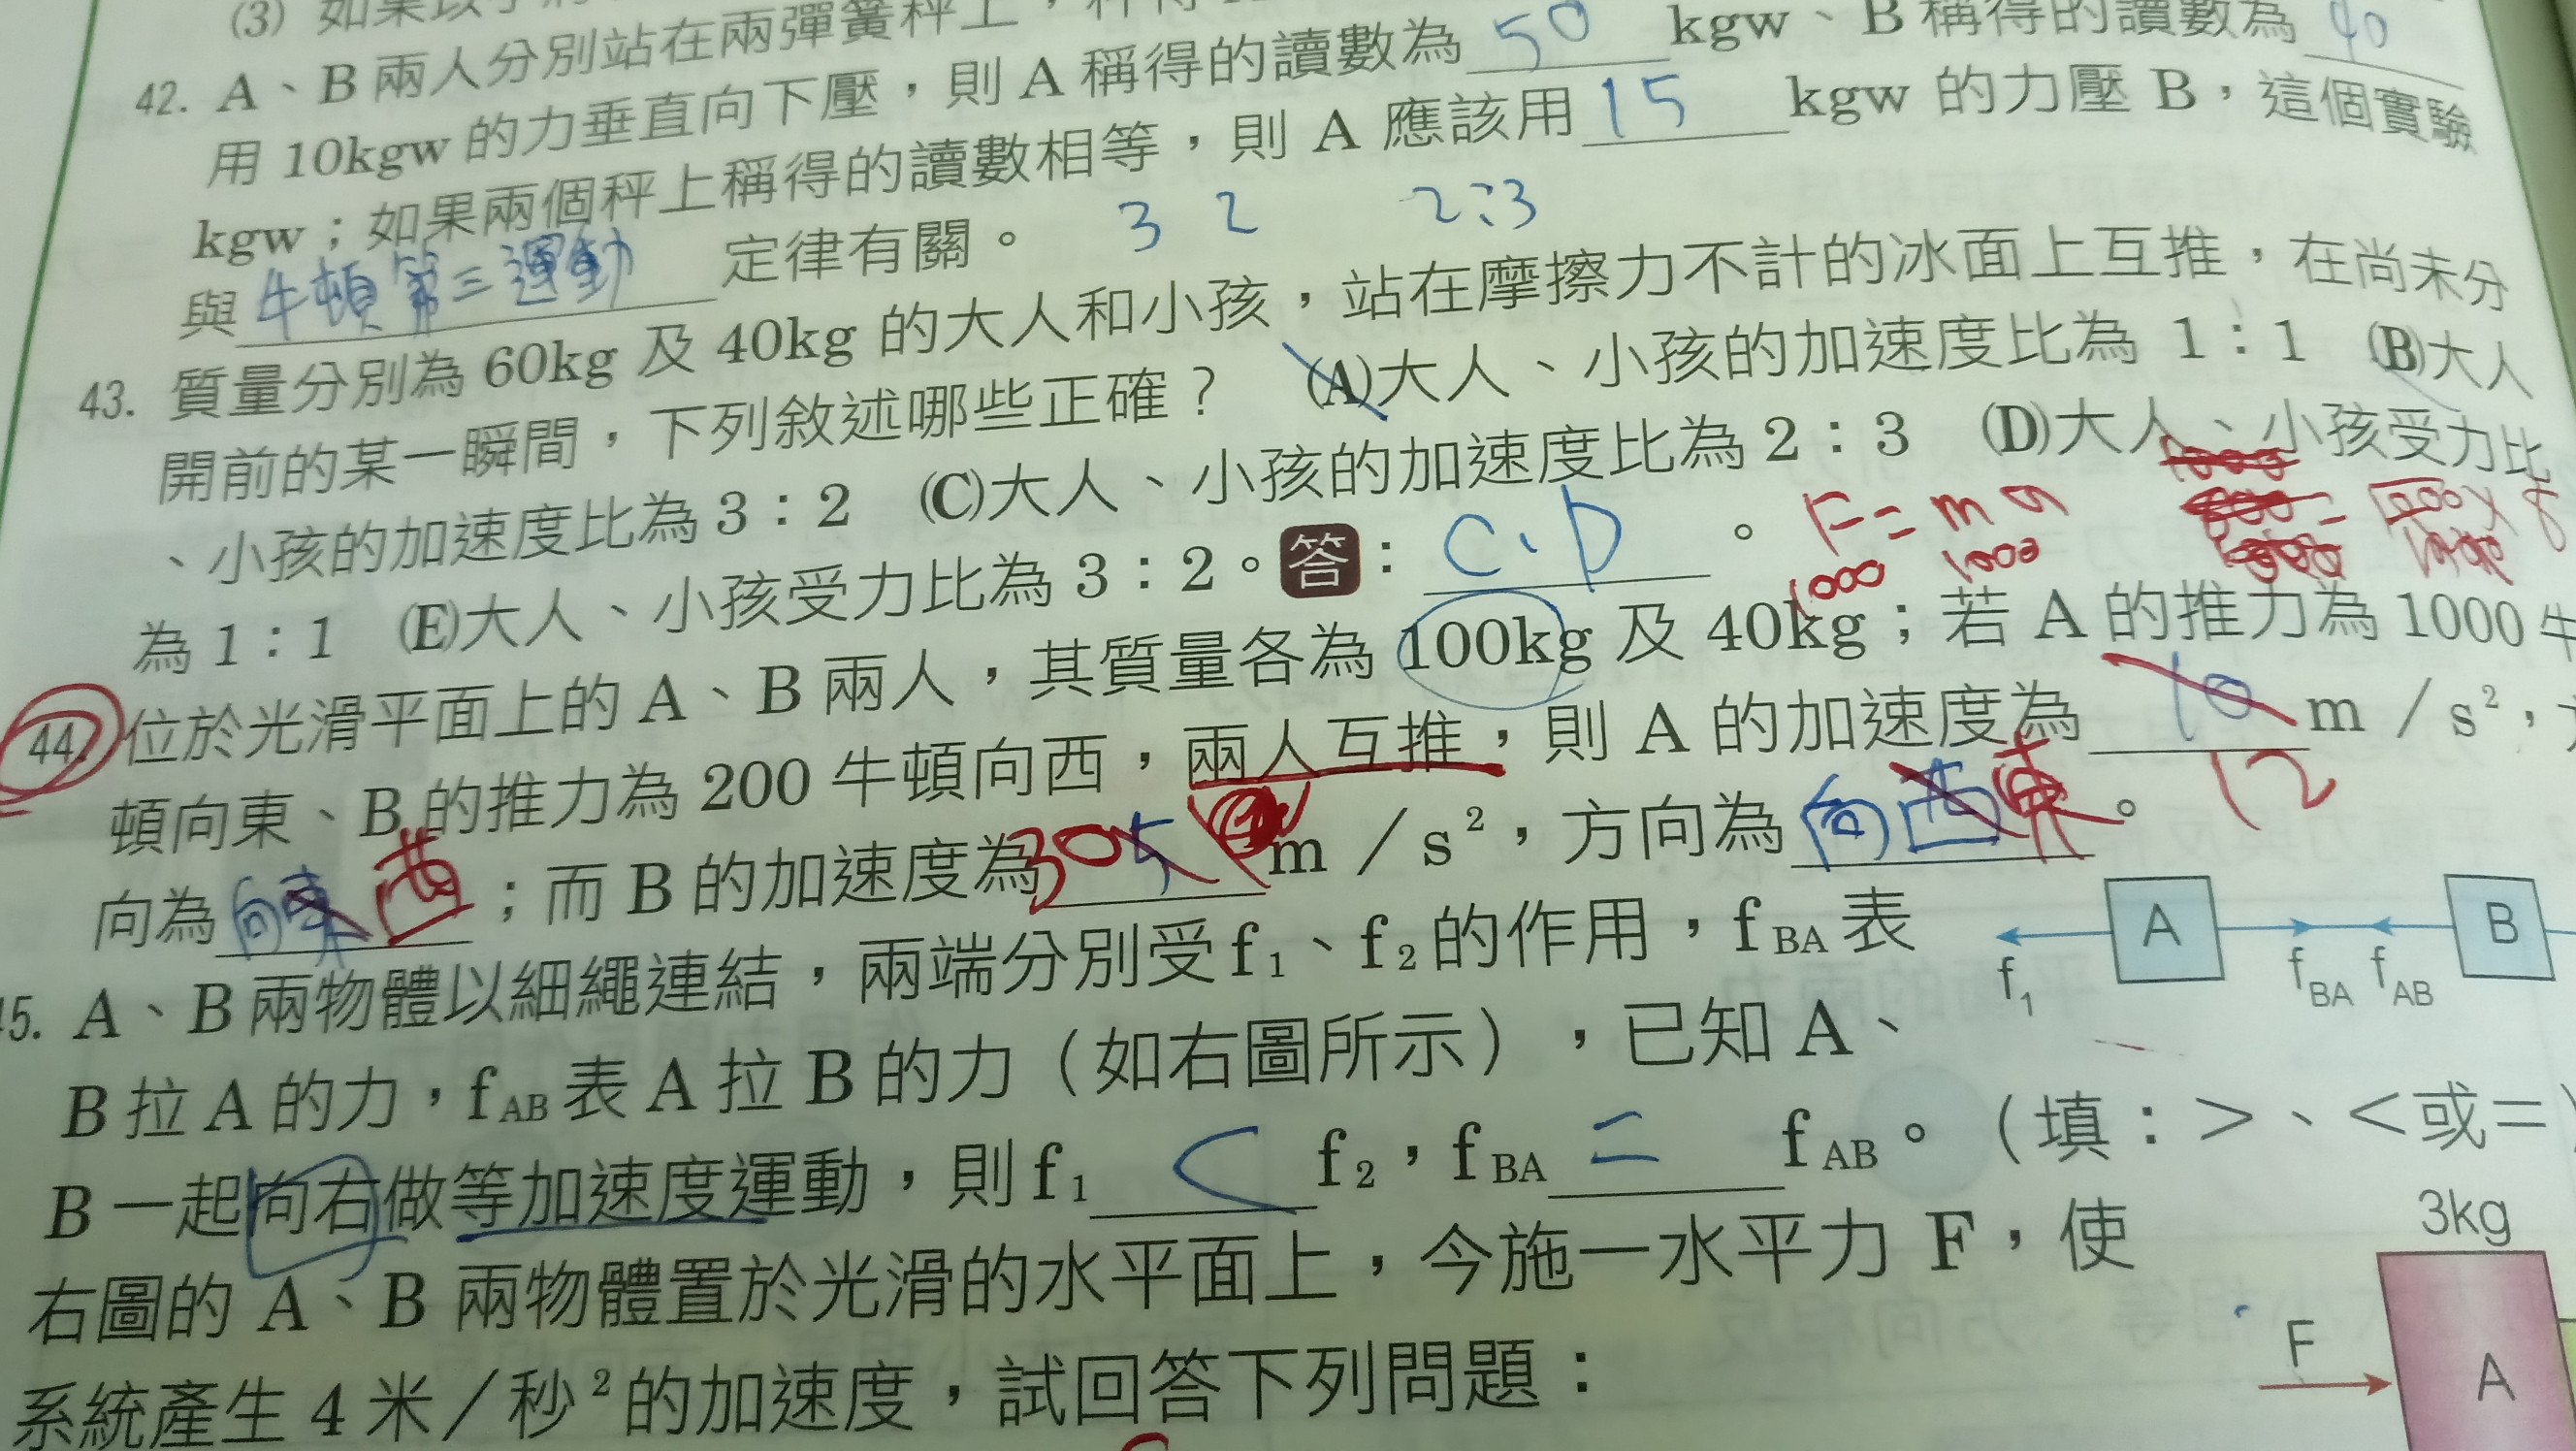 (3) 如果以手
42. A、B 兩人分別站在兩彈簧秤上，秤得
用 10kgw 的力垂直向下壓，則 A 稱得的讀數為 50 kgw、B 稱得的讀數為 40
kgw；如果兩個秤上稱得的讀數相等，則 A 應該用 15 kgw 的力壓 B，這個實驗
與 牛頓第三運動 定律有關。
3 2 2:3
43. 質量分別為 60kg 及 40kg 的大人和小孩，站在摩擦力不計的冰面上互推，在尚未分
開前的某一瞬間，下列敘述哪些正確？ (A)大人、小孩的加速度比為 1：1 (B)大人
、小孩的加速度比為 3：2 (C)大人、小孩的加速度比為 2：3 (D)大人、小孩受力比
為 1：1 (E)大人、小孩受力比為 3：2。答： C、D 。
F=ma
1000
44. 位於光滑平面上的 A、B 兩人，其質量各為 100kg 及 40kg；若 A 的推力為 1000 牛
頓向東、B 的推力為 200 牛頓向西，兩人互推，則 A 的加速度為 10 m／s²，
12
向為 向東 西 ；而 B 的加速度為 30 5 m／s²，方向為 向西 東 。
45. A、B 兩物體以細繩連結，兩端分別受 f1、f2 的作用，fBA 表
B 拉 A 的力，fAB 表 A 拉 B 的力（如右圖所示），已知 A、
B 一起向右做等加速度運動，則 f1 < f2，fBA = fAB。（填：＞、＜或＝）
A B
f1 fBA fAB
右圖的 A、B 兩物體置於光滑的水平面上，今施一水平力 F，使
系統產生 4 米／秒² 的加速度，試回答下列問題：
3kg
F
A